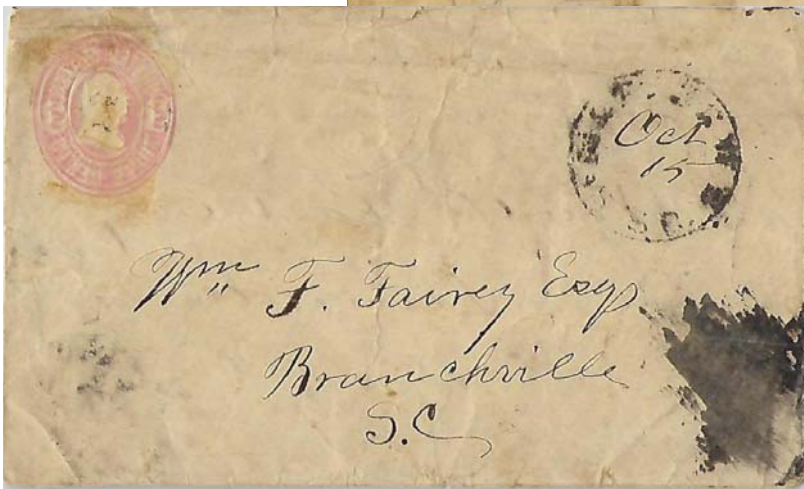 Oct
15
Wm F. Fairey Esq
Branchville
S.C